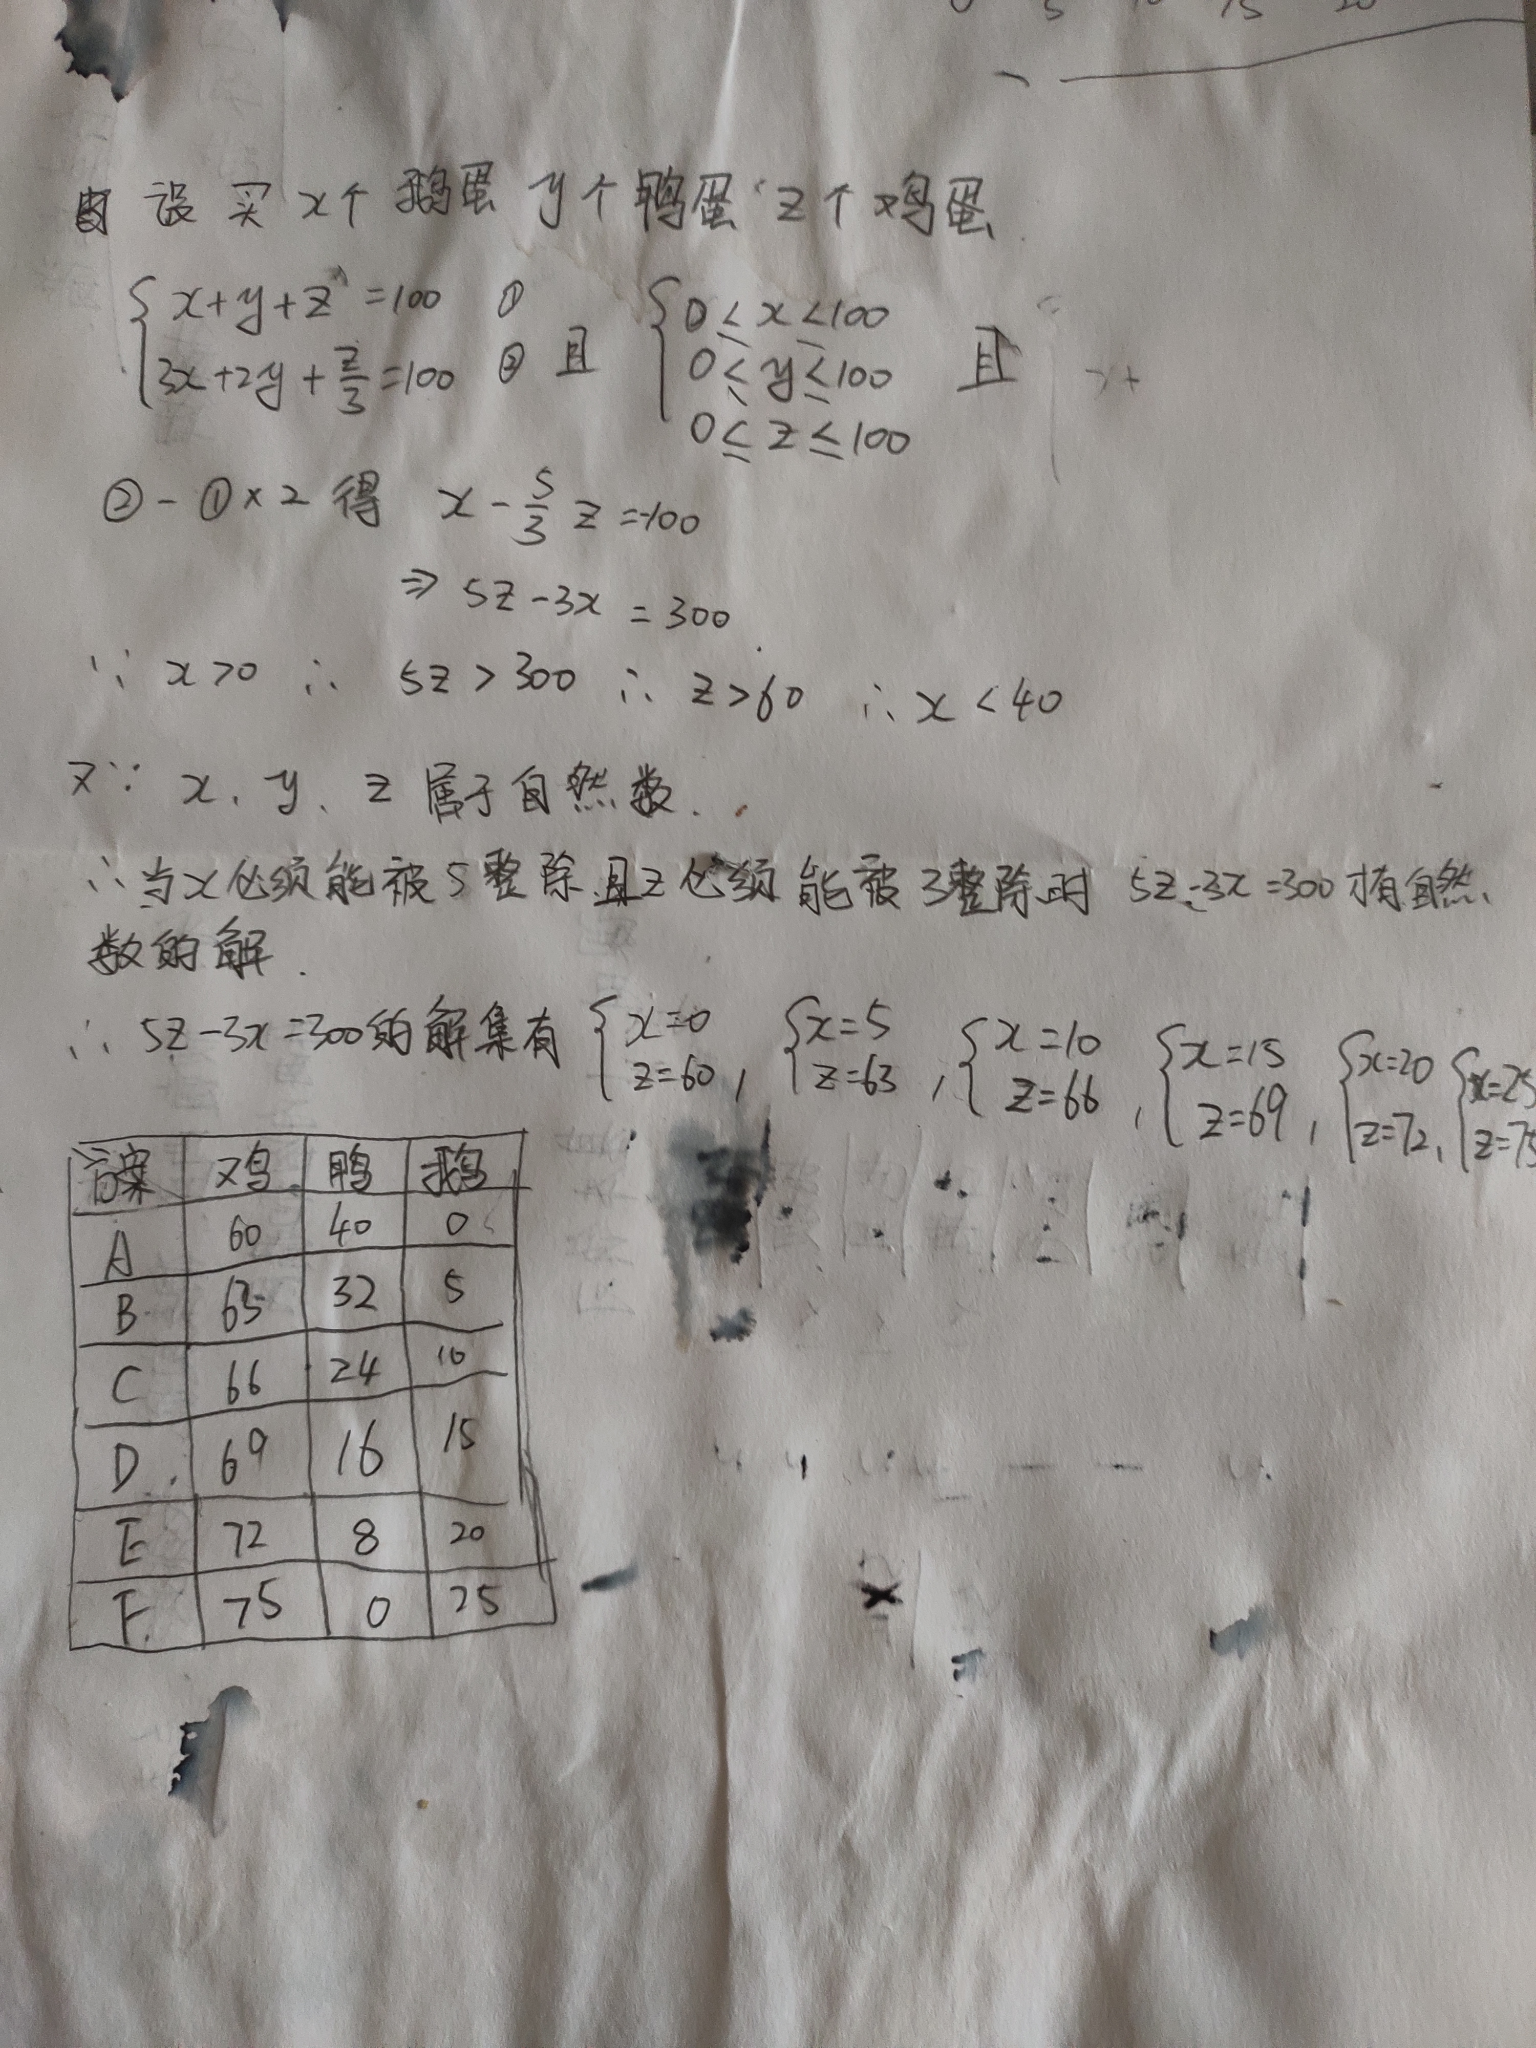 5 10 15 20
设买x个鹅蛋 y个鸭蛋 z个鸡蛋
{x+y+z=100 ① 3x+2y+z/3=100 ② 且 {0≤x≤100 0≤y≤100 0≤z≤100 且
②-①×2得 x-5/3 z=-100
⇒ 5z-3x=300
∵ x>0 ∴ 5z>300 ∴ z>60 ∴ x<40
又∵ x、y、z属于自然数.
∴当x必须能被5整除且z必须能被3整除时 5z-3x=300才有自然
数的解.
∴ 5z-3x=300的解集有 {x=0 z=60, {x=5 z=63, {x=10 z=66, {x=15 z=69, {x=20 z=72, {x=25 z=75
方案 鸡 鸭 鹅
A 60 40 0
B 63 32 5
C 66 24 10
D 69 16 15
E 72 8 20
F 75 0 25